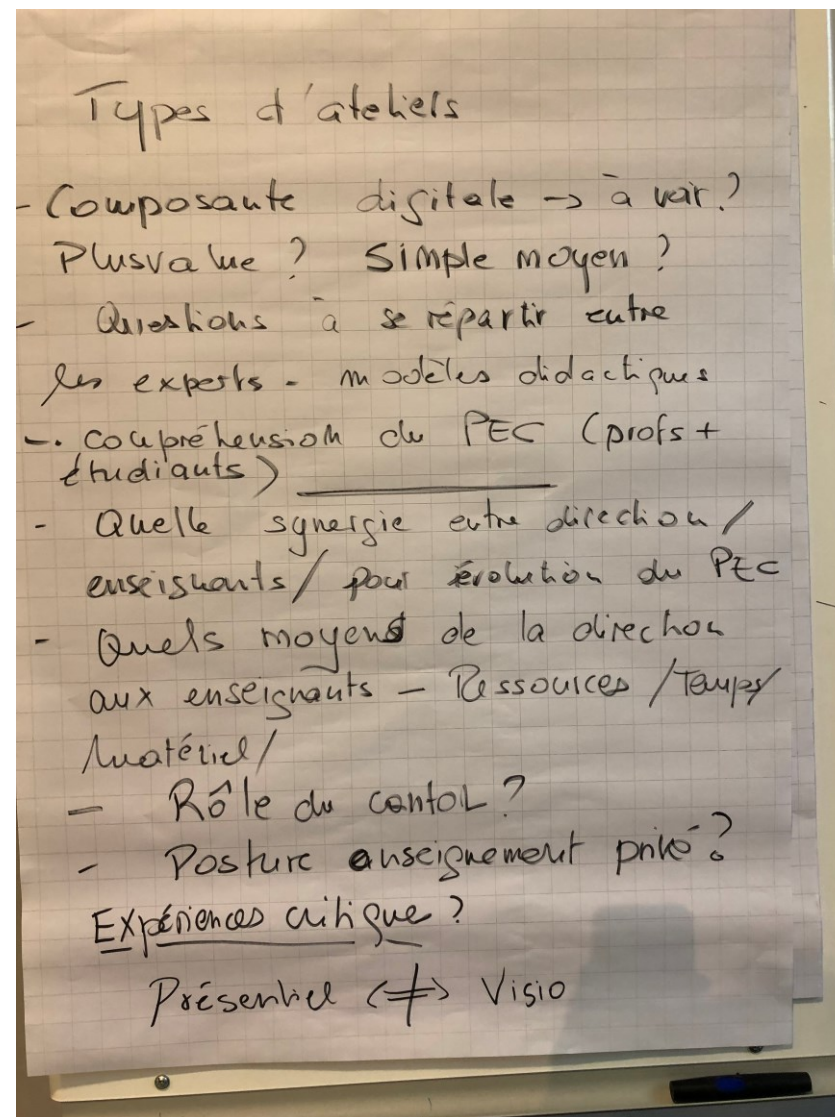 Types d'ateliers
- Composante digitale -> à voir?
Plusvalue ? Simple moyen ?
- Questions à se répartir entre
les experts - modèles didactiques
-. compréhension du PEC (profs +
étudiants)
- Quelle synergie entre direction /
enseignants / pour évolution du PEC
- Quels moyens de la direction
aux enseignants - Ressources / Temps /
Matériel /
- Rôle du canton ?
- Posture enseignement privé ?
Expériences critique ?
Présentiel <≠> Visio